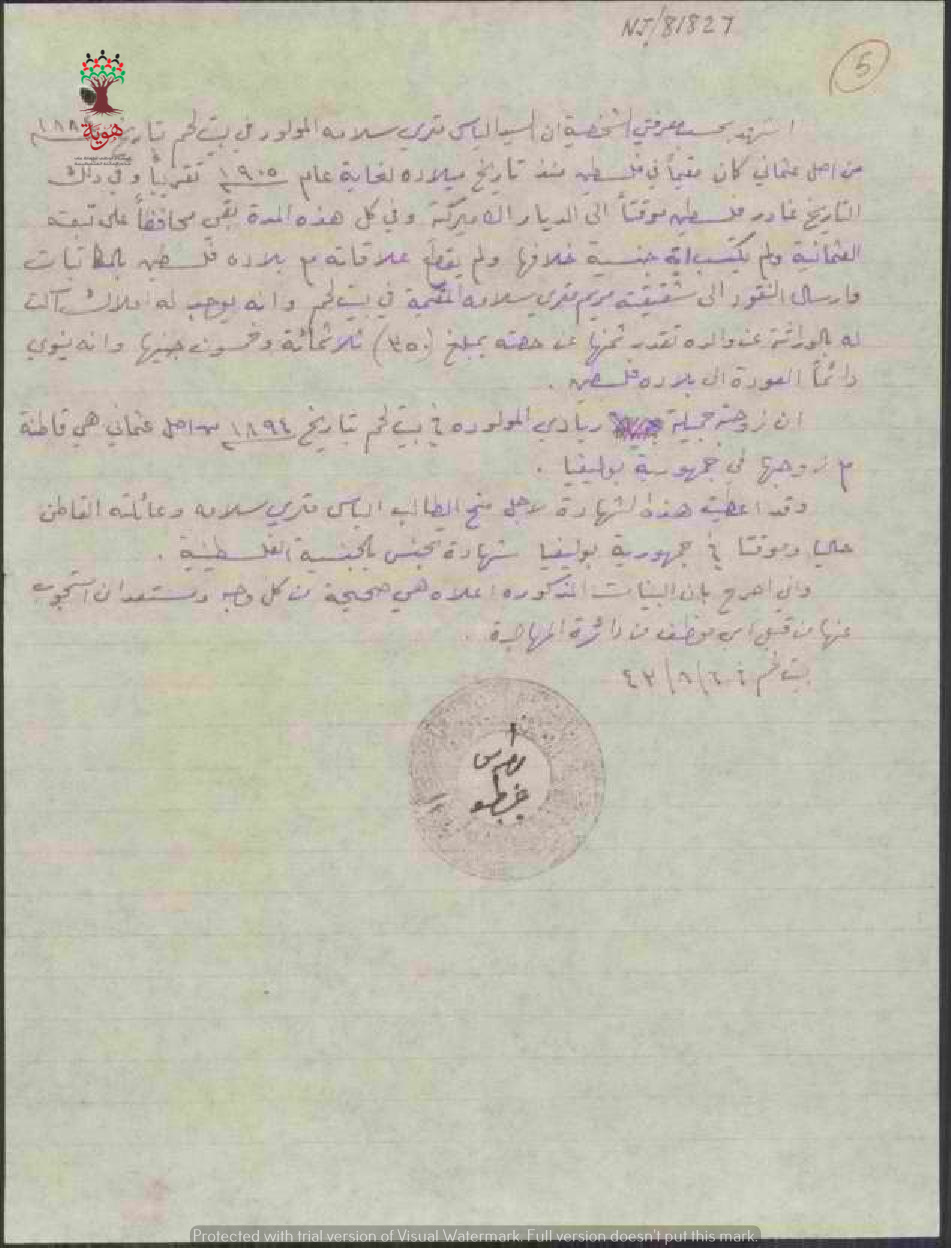 NJ/81827
5
هوية
اشهد بحسب معرفتي الشخصية ان السيد الياس متري سلامه المولود في بيت لحم بتاريخ
من اصل عثماني كان مقيماً في فلسطين منذ تاريخ ميلاده لغاية عام ١٩٠٥ تقريباً وفي ذلك
التاريخ غادر فلسطين موقتاً الى الديار الاميركية وفي كل هذه المدة بقي محافظاً على تبعته
العثمانية ولم يكتسب اية جنسية خلافها ولم يقطع علاقاته مع بلاده فلسطين بالمكاتبات
وارسال النقود الى شقيقته مريم متري سلامه المقيمة في بيت لحم وانه يوجد له املاك آلت
له بالوراثة عن والده تقدر ثمنها عن حصته بمبلغ (٣٥٠) ثلاثمائة وخمسون جنيها وانه ينوي
دائماً العودة الى بلاده فلسطين .
ان زوجته جميلة زيادي المولوده في بيت لحم بتاريخ ١٨٩٤ من اصل عثماني هي قاطنة
مع زوجها في جمهورية بوليفيا .
وقد اعطيت هذه الشهادة لاجل منح الطالب الياس متري سلامه وعائلته القاطن
حاليا وموقتا في جمهورية بوليفيا شهادة تجنس بالجنسية الفلسطينية .
واني اصرح بان البينات المذكوره اعلاه هي صحيحة من كل وجه ومستعد ان استجوب
عنها من قبل اي موظف من دائرة المهاجرة .
بيت لحم في
Protected with trial version of Visual Watermark. Full version doesn't put this mark.